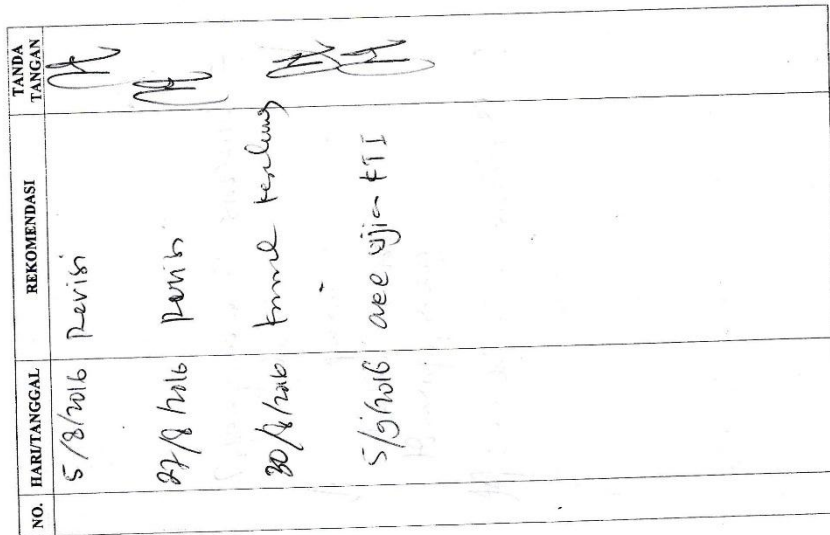 NO. HARI/TANGGAL REKOMENDASI TANDA TANGAN
5/8/2016 Revisi
27/8/2016 Revisi
30/8/2016
5/9/2016 acc ujian KTI